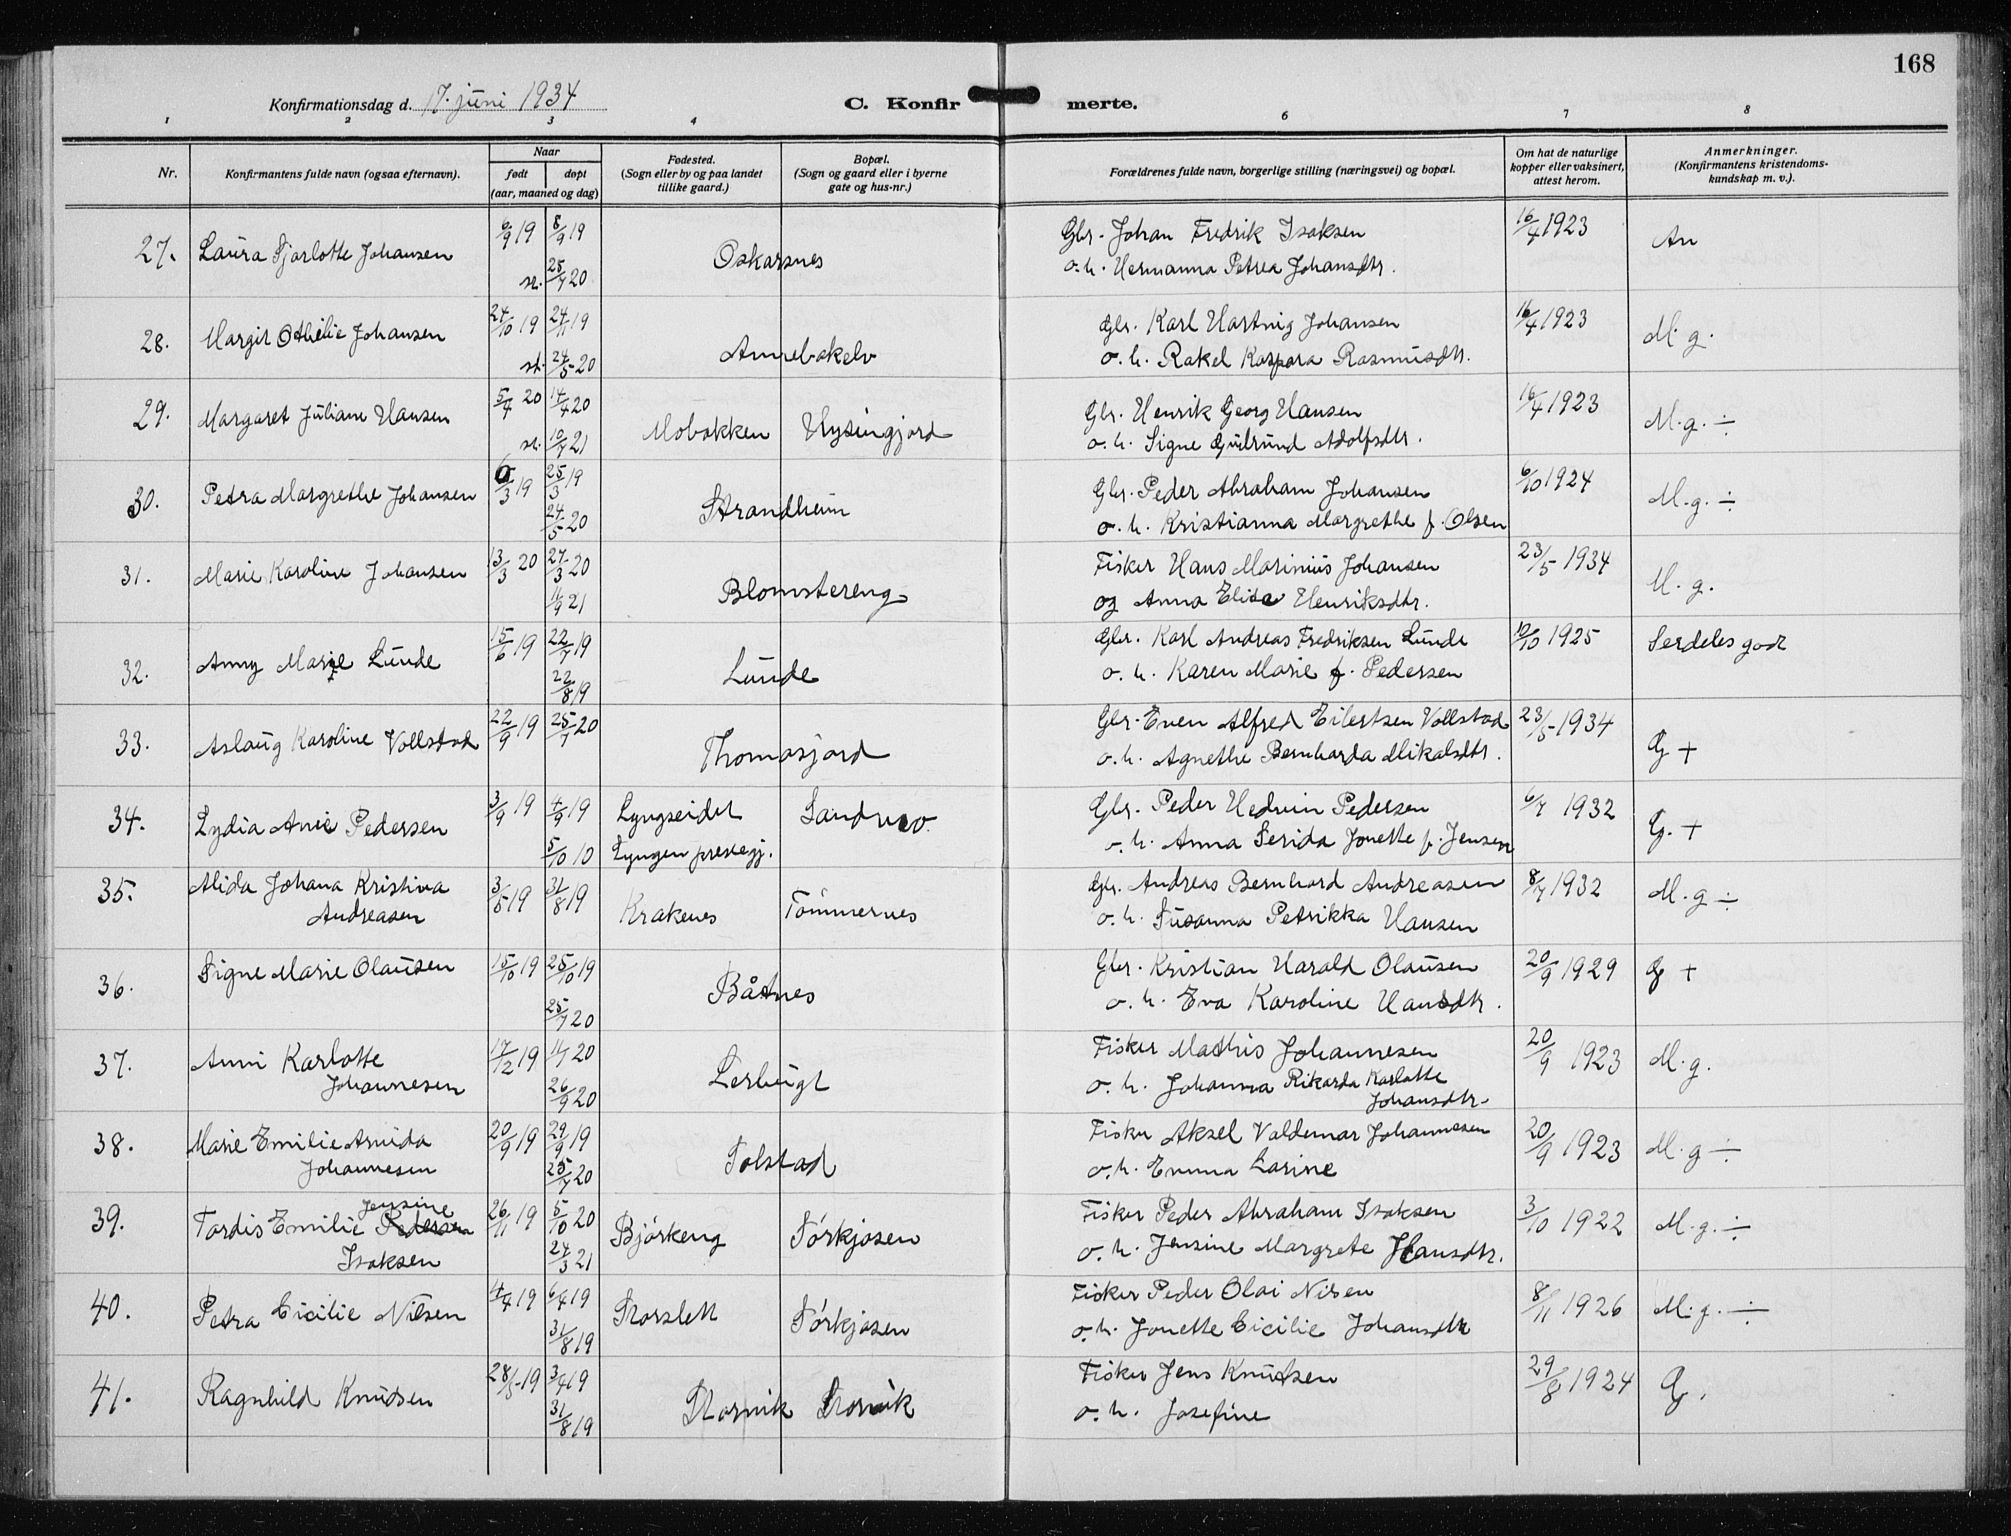 168
Konfirmationsdag d. 17. juni 1934
C. Konfirmerte.
1 2 3 4 6 7 8
Nr.
Konfirmantens fulde navn (ogsaa efternavn).
Naar
født
døpt
(aar, maaned og dag)
Fødested.
(Sogn eller by og paa landet
tillike gaard.)
Bopæl.
(Sogn og gaard eller i byerne
gate og hus-nr.)
Forældrenes fulde navn, borgerlige stilling (næringsvei) og bopæl.
Om hat de naturlige
kopper eller vaksinert,
attest herom.
Anmerkninger.
(Konfirmantens kristendoms-
kundskap m. v.).
27. Laura Sjarlotte Johansen 6/9 19 8/9 19 st. 25/7 20 Oskarsnes
Gbr. Johan Fredrik Isaksen 16/4 1923
o. h. Hermanna Petrea Johansdtr.
28. Margit Othelie Johansen 24/10 19 24/11 19 st. 24/5 20
Gbr. Karl Hartvig Johansen 16/4 1923 M. g.
o. h. Rakel Kaspara Rasmusdtr.
29. Margaret Juliane Hansen 5/4 20 14/4 20 st. 10/7 21 Mobakken Hysingjord
Gbr. Henrik Georg Hansen 16/4 1923 M. g. ÷
o. h. Signe Gudrund Adolfsdtr.
30. Petra Margrethe Johansen 6/3 19 25/3 19 24/5 20 Strandheim
Gbr. Peder Abraham Johansen 6/10 1924 M. g. ÷
o. h. Kristianna Margrethe f. Olsen
31. Marie Karoline Johansen 13/3 20 27/3 20 11/9 21 Blomstereng
Fisker Hans Marinius Johansen 23/5 1934 M. g.
og Anna Elise Henriksdtr.
32. Anny Marie Lunde 15/6 19 22/7 19 22/8 19 Lunde
Gbr. Karl Andreas Fredriksen Lunde 12/10 1925 Serdeles god
o. h. Karen Marie f. Pedersen
33. Aslaug Karoline Vollstad 22/9 19 25/7 20 Thomasjord
Gbr. Even Alfred Eilertsen Vollstad 23/5 1934 G +
o. h. Agnethe Bernharda Mikalsdtr.
34. Lydia Anie Pedersen 3/9 19 4/9 19 5/10 10 Lyngseidet
Lyngen prestegj.
Gbr. Peder Hedvin Pedersen 6/7 1932 G. +
o. h. Anna Serida Jonette f. Jensen
35. Alida Johana Kristina
Andreasen 3/5 19 31/8 19 Krakenes Tömmernes
Gbr. Andreas Bernhard Andreasen 8/7 1932 M. g ÷
o. h. Susanna Petrikka Hansen
36. Signe Marie Olausen 15/10 19 25/10 19 25/7 20 Båtnes
Gbr. Kristian Harald Olausen 20/9 1929 G +
o. h. Eva Karoline Hansdtr.
37. Anni Karlotte
Johannesen 17/12 19 1/1 20 26/9 20 Lerbugt
Fisker Mathis Johannesen 20/9 1923 M. g.
o. h. Johanna Rikarda Karlotte
Johansdtr.
38. Marie Emilie Arnida
Johannesen 20/9 19 29/9 19 25/7 20 Solstad
Fisker Aksel Valdemar Johannesen 20/9 1923 M. g ÷
o. h. Emma Larine
39. Tordis Emilie Pedersen Jensine
Isaksen 26/11 19 5/10 20 24/3 21 Björkeng Sörkjosen
Fisker Peder Abraham Isaksen 3/10 1922 M. g. ÷
o. h. Jensine Margrete Hansdtr.
40. Petra Cicilie Nilsen 4/4 19 6/4 19 31/8 19 Storslett Sörkjosen
Fisker Peder Olai Nilsen 8/11 1926 M. g. ÷
o. h. Jonette Cicilie Johansdtr
41. Ragnhild Knudsen 28/5 19 31/8 19 Storvik Storvik
Fisker Jens Knutsen 29/8 1924 G.
o. h. Josefine